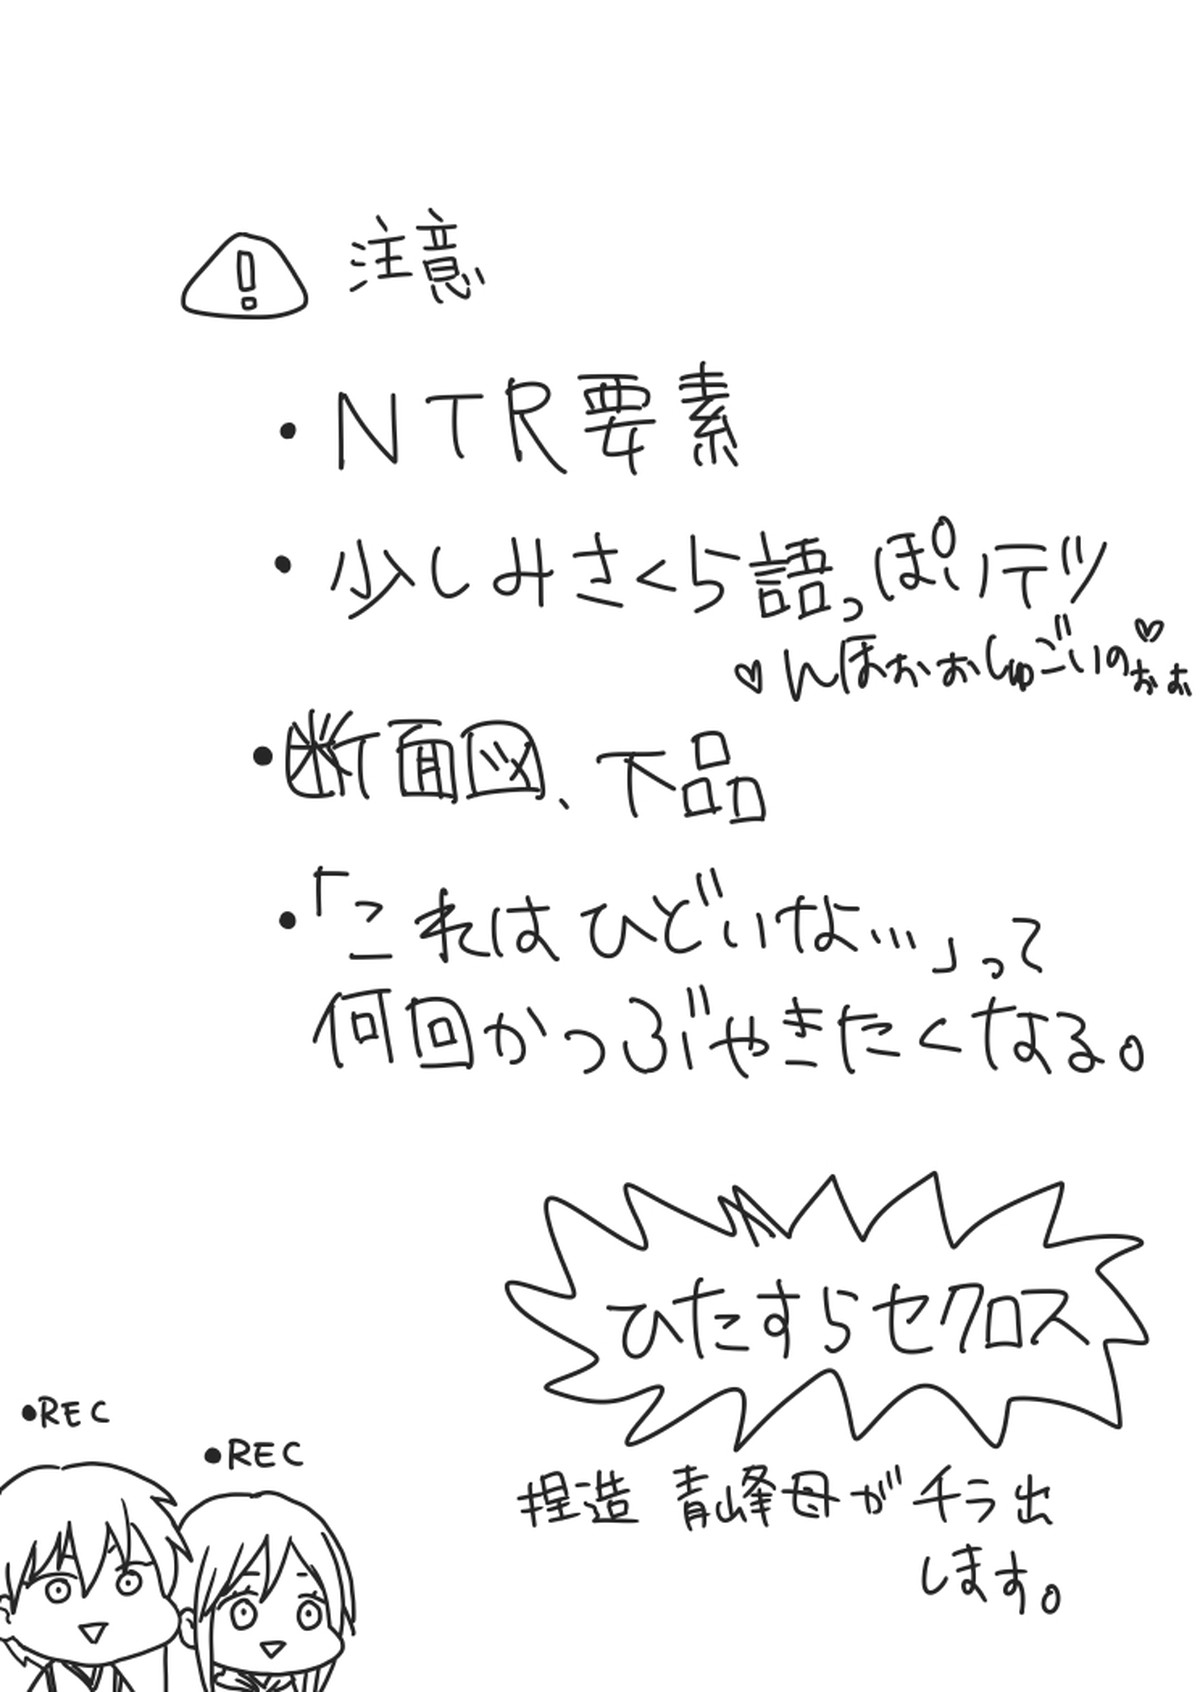 ! 注意
・NTR要素
・少しみさくら語っぽいデツ
♡んほぉぉしゅごいのぉぉ♡
・断面図、下品
・「これはひどいな…」って
何回かつぶやきたくなる。
ひたすらセクロス
●REC
●REC
捏造 青峰母がチラ出
します。